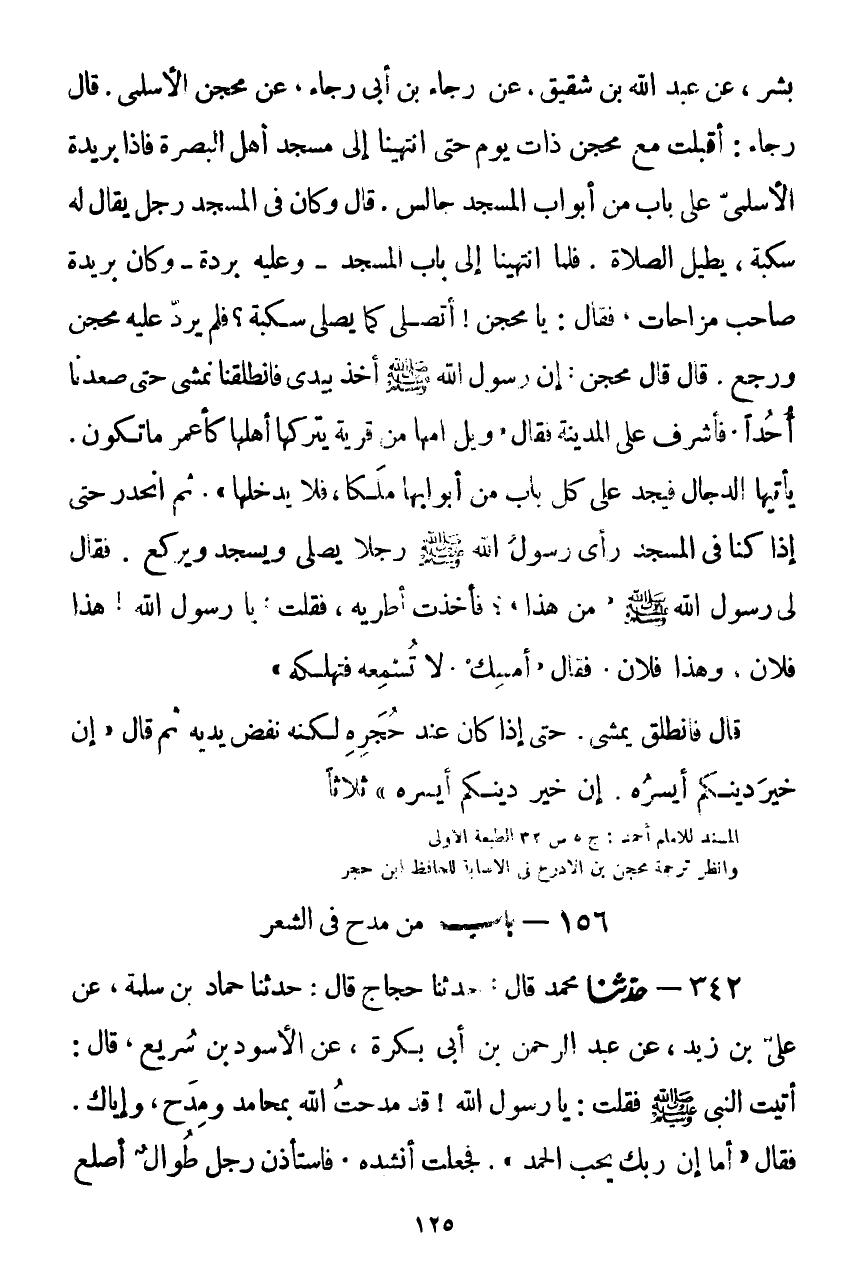 بشر ، عن عبد الله بن شقيق . عن رجاء بن أبى رجاء ، عن محجن الأسلمى . قال
رجاء : أقبلت مع محجن ذات يوم حتى انتهينا إلى مسجد أهل البصرة فاذا بريدة
الأسلمىّ على باب من أبواب المسجد جالس . قال وكان فى المسجد رجل يقال له
سكبة ، يطيل الصلاة . فلما انتهينا إلى باب المسجد ــ وعليه بردة ــ وكان بريدة
صاحب مزاحات ، فقال : يا محجن ! أتصلى كما يصلى سكبة ؟ فلم يردّ عليه محجن
ورجع . قال قال محجن : إن رسول الله ﷺ أخذ بيدى فانطلقنا نمشى حتى صعدنا
أُحُداً . فأشرف على المدينة فقال « ويل امها من قرية يتركها أهلها كأعمر ماتكون .
يأتيها الدجال فيجد على كل باب من أبوابها ملَكا ، فلا يدخلها » . ثم انحدر حتى
إذا كنا فى المسجد رأى رسولُ الله ﷺ رجلا يصلى ويسجد ويركع . فقال
لى رسول الله ﷺ « من هذا » ؟ فأخذت أطريه ، فقلت : يا رسول الله ! هذا
فلان ، وهذا فلان . فقال « أمسِكْ . لا تُسْمِعه فتهلكه »
قال فانطلق يمشى . حتى إذا كان عند حُجَرِهِ لكنه نفض يديه ثم قال « إن
خيرَ دينكم أيسرُه . إن خير دينكم أيسره » ثلاثاً
المسند للامام أحمد : ج ٥ س ٣٢ الطبعة الأولى
وانظر ترجمة محجن بن الادرع فى الاصابة للحافظ ابن حجر
١٥٦ ــ باب من مدح فى الشعر
٣٤٢ ــ حدّثنا محمد قال : حدثنا حجاج قال : حدثنا حماد بن سلمة ، عن
علىّ بن زيد ، عن عبد الرحمن بن أبى بكرة ، عن الأسود بن سُريع ، قال :
أتيت النبى ﷺ فقلت : يا رسول الله ! قد مدحتُ الله بمحامد ومِدَح ، وإياك .
فقال « أما إن ربك يحب الحمد » . فجعلت أنشده . فاستأذن رجل طُوالٌ أصلع
١٢٥